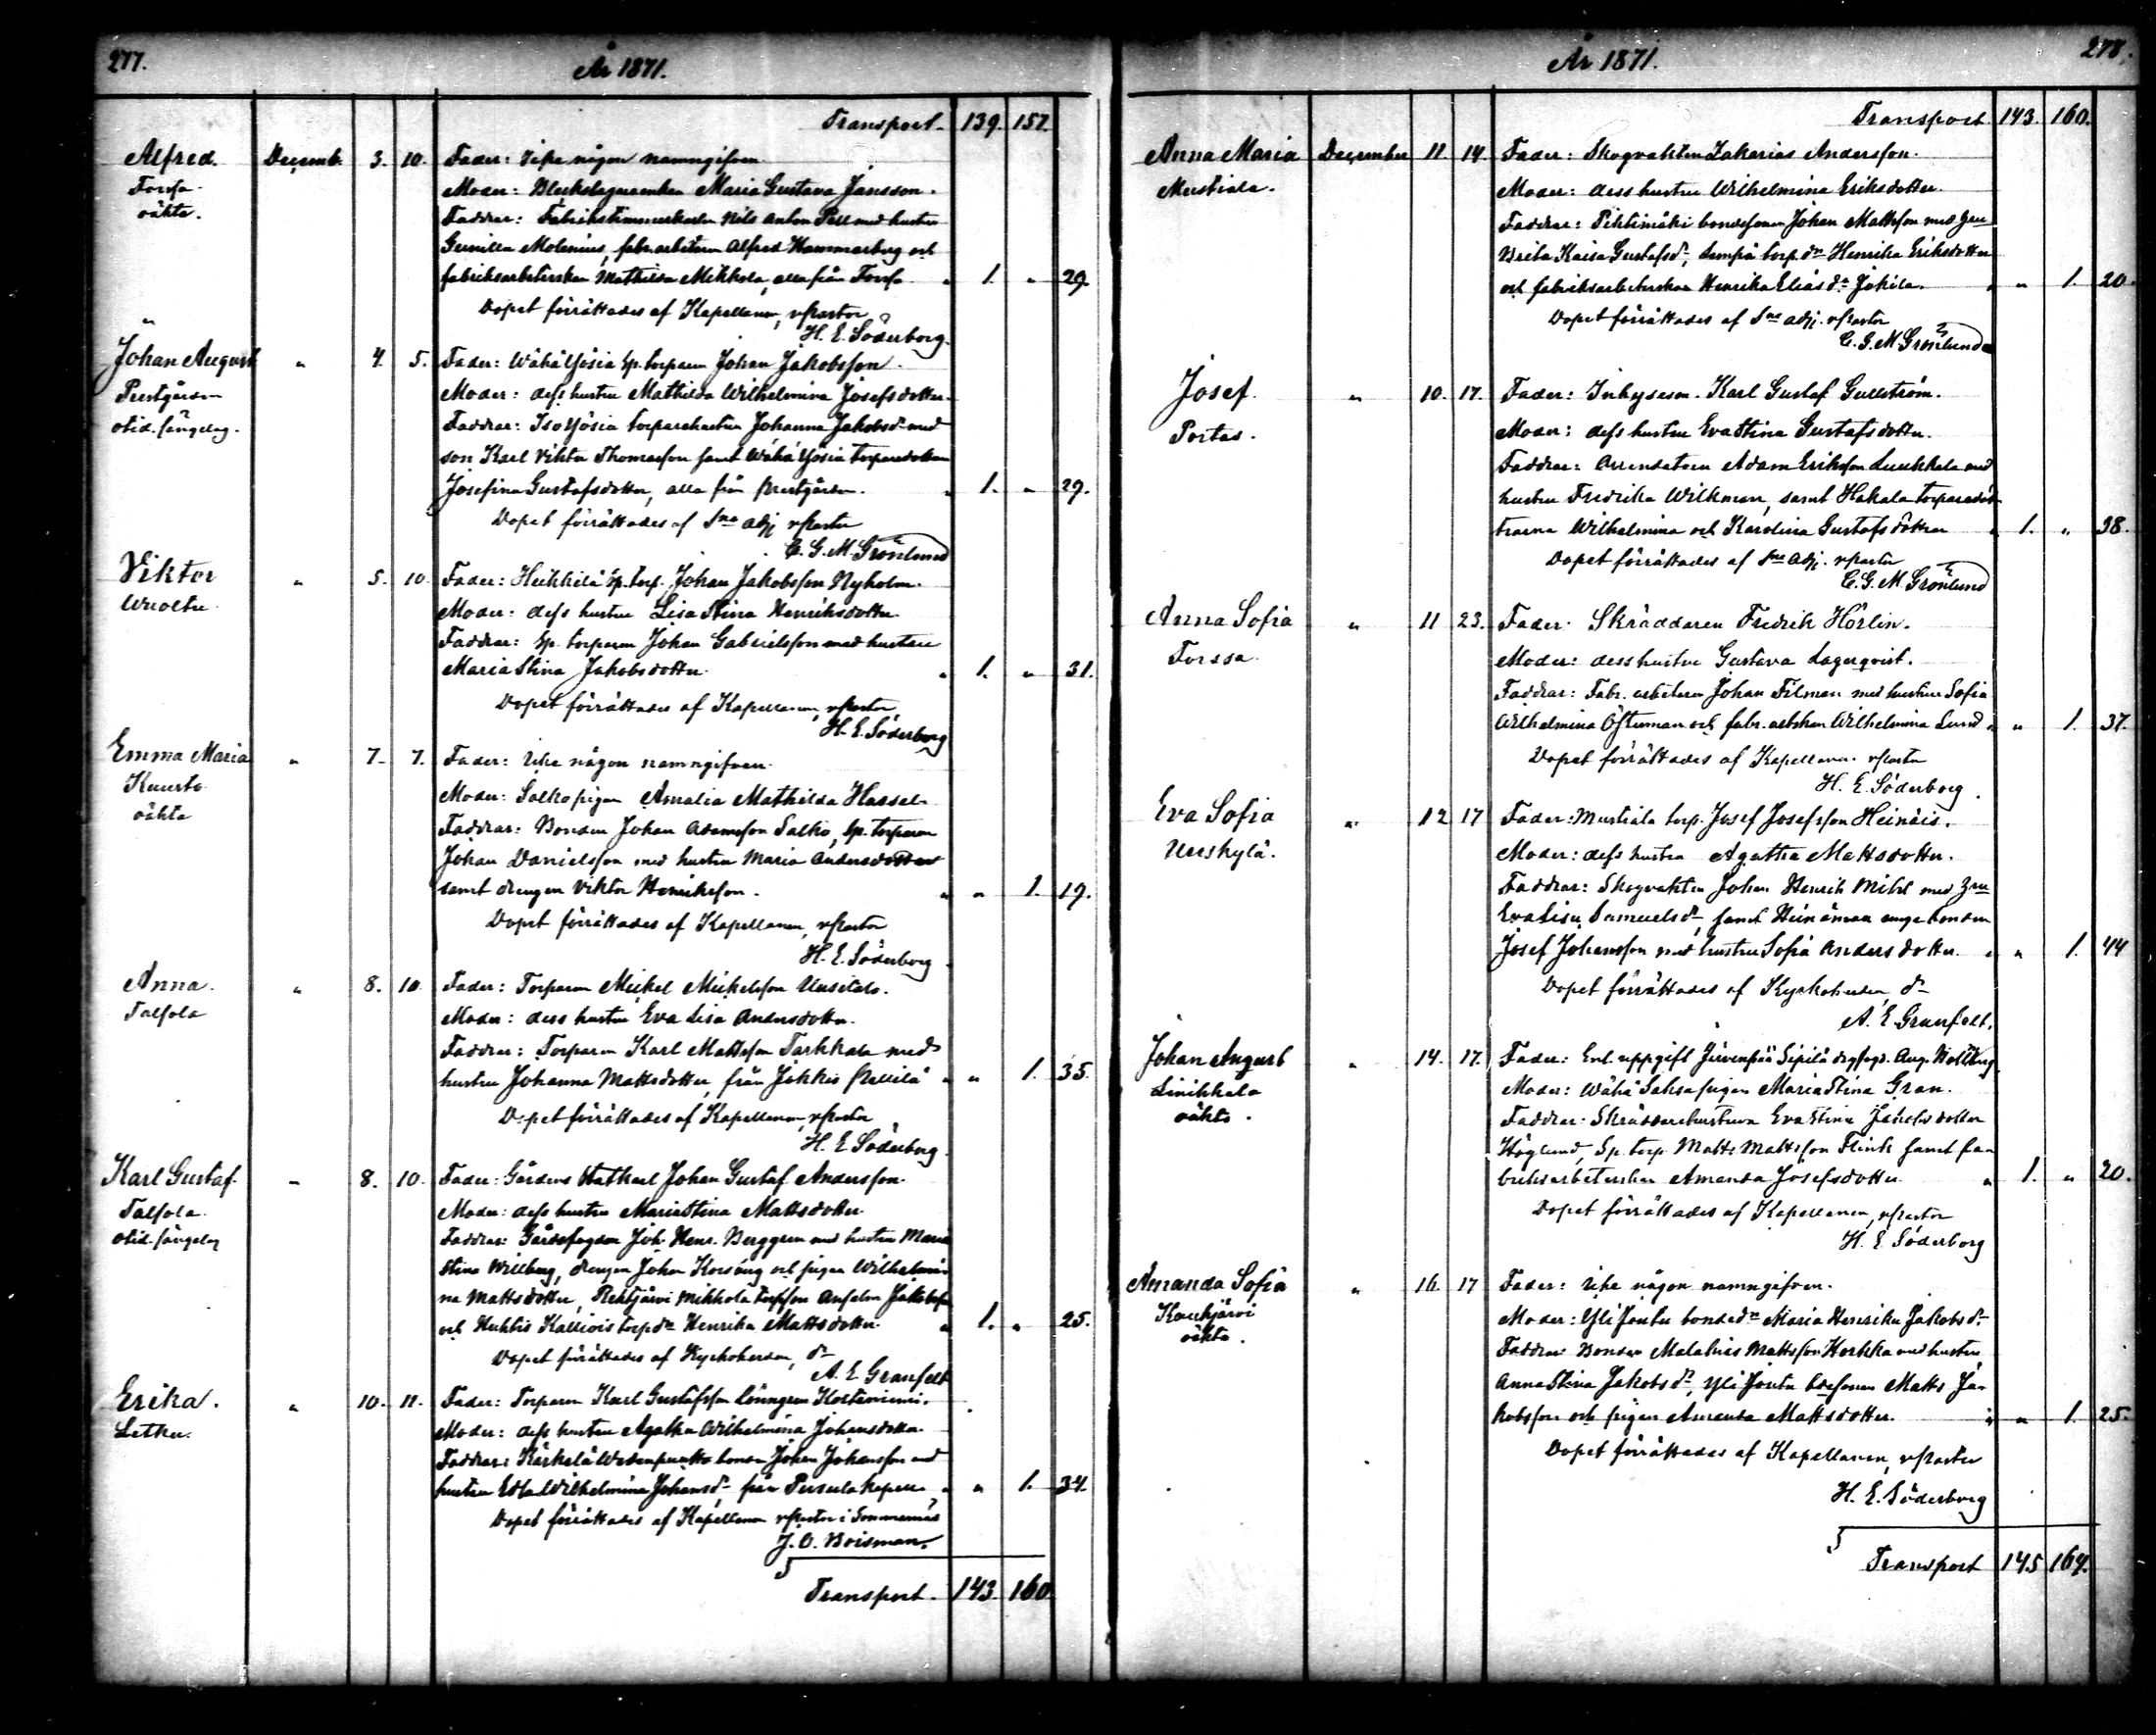 277.
År 1871.
Transport. 139. 157.
Alfred. Decemb. 3. 10. Fader: Icke någon namngifven
Forssa. Moder: Bleckslagareenkan Maria Gustava Jansson.
oäkta. Faddrar: Fabrikstimmerkarlen Nils Anton Pell med hustru
Gunilla Molenius, fabr.arbetaren Alfred Hammarberg och
fabriksarbeterskan Mathilda Mikkola, alla från Forssa. " 1. " 29.
Dopet förrättades af Kapellanen, vPastor
H. E. Söderborg.
Johan August " 4. 5. Fader: Wähä Yösiä sp. torparen Johan Jakobsson.
Prestgården Moder: dess hustru Mathilda Wilhelmina Josefsdotter.
otid. sängelag. Faddrar: Iso Yösiä torparehustrun Johanna Jakobsdr med
son Karl Viktor Thomasson samt Wähä Yösiä torparedottern
Josefina Gustafsdotter, alla från Prestgården. " 1. " 29.
Dopet förrättades af Sne adj. vPastor
C. G. M. Grönlund
Viktor " 5. 10. Fader: Heikkilä sp. torp. Johan Jakobsson Nyholm.
Moder: dess hustru Lisa Stina Henriksdotter.
Faddrar: Sp. torparen Johan Gabrielsson med hustru
Maria Stina Jakobsdotter. " 1. " 31.
Dopet förrättades af Kapellanen, vPastor
H. E. Söderborg
Emma Maria " 7. 7. Fader: icke någon namngifven.
Kuusto Moder: Salko pigan Amalia Mathilda Hassel.
oäkta Faddrar: Bonden Johan Adamsson Salko, sp. torparen
Johan Danielsson med hustru Maria Andersdotter
samt drengen Viktor Henriksson. " " 1. 19.
Dopet förrättades af Kapellanen, vPastor
H. E. Söderborg
Anna. " 8. 10. Fader: Torparen Mickel Mickelsson Uusitalo.
Talsola Moder: dess hustru Eva Lisa Andersdotter.
Faddrar: Torparen Karl Mattsson Tarkkala med
hustru Johanna Mattsdotter, från Jokkis " " 1. 35.
Dopet förrättades af Kapellanen, vPastor
H. E. Söderborg
Karl Gustaf. " 8. 10. Fader: Gårdens Statkarl Johan Gustaf Andersson.
Talsola. Moder: dess hustru Maria Stina Mattsdotter.
otid. sängelag Faddrar: Gårdsfogden Joh. Henr. Berggren med hustru Maria
Stina Willberg, drengen Johan Korsång och pigan Wilhelmi-
na Mattsdotter, Rehtijärvi Mikkola torp.son Anselm Jakobsson
och Huhtis Kalliois torp.dr Henrika Mattsdotter. " 1. " 25.
Dopet förrättades af Kyrkoherden, dr
A. E. Granfelt
Erika. " 10. 11. Fader: Torparen Karl Gustafsson Lönngren Kostiniemi.
Letku. Moder: dess hustru Agatha Wilhelmina Johansdotter.
Faddrar: Kärkelä bonden Johan Johansson med
hustru Edla Wilhelmina Johansdr från Pusula kapell " " 1. 34.
Dopet förrättades af Kapellanen vPastor i Sommernäs
J. O. Boisman.
Transport. 143. 160.
278.
År 1871.
Transport 143. 160.
Anna Maria December 11. 14. Fader: Skogvakten Zakarias Andersson.
Mustiala. Moder: dess hustru Wilhelmina Eriksdotter.
Faddrar: Pihtimäki bondesonen Johan Mattsson med
Brita Kaisa Gustafsdr, torp.dr Henrika Eriksdotter
och fabriksarbeterskan Henrika Eliasdr Jokila. " " 1. 20.
Dopet förrättades af Sne adj. vPastor
C. G. M. Grönlund
Josef. " 10. 17. Fader: Inhysesm. Karl Gustaf Gullström.
Portas. Moder: dess hustru Eva Stina Gustafsdotter.
Faddrar: Arrendatorn Adam Eriksson Luukkala med
hustru Fredrika Wilkman, samt Hakala torparedöt-
trarna Wilhelmina och Karolina Gustafsdöttrar " 1. " 38.
Dopet förrättades af Sne adj. vPastor
C. G. M. Grönlund
Anna Sofia " 11 23. Fader: Skräddaren Fredrik Hörlin.
Forssa. Moder: dess hustru Gustava Lagerqvist.
Faddrar: Fabr. arbetaren Johan Tilman med hustru Sofia
Wilhelmina Österman och fabr.arbskan Wilhelmina Lund " " 1. 37.
Dopet förrättades af Kapellanen vPastor
H. E. Söderborg.
Eva Sofia " 12 17 Fader: Mustiala torp. Josef Josefsson Heinäis.
Uuskylä. Moder: dess hustru Agatha Mattsdotter.
Faddrar: Skogvakten Johan Henrik Mild med
Eva Lisa Samuelsdr samt Heinämaa unge bonden
Josef Johansson med hustru Sofia Andersdotter. " " 1. 44
Dopet förrättades af Kyrkoherden, dr
A. E. Granfelt.
Johan August " 14. 17. Fader: Enl. uppgift Järvenpää Sipilä Aug. Wallberg
Linikkala Moder: Wähä Saksa pigan Maria Stina Gran.
oäkta. Faddrar: Skräddarehustrun Eva Stina Jakobsdotter
Höglund, Sp. torp. Matts Mattsson Flink samt fa-
briksarbeterskan Amanda Josefsdotter. " 1. " 20.
Dopet förrättades af Kapellanen, vPastor
H. E. Söderborg
Amanda Sofia " 16. 17 Fader: icke någon namngifven.
Kaukjärvi Moder: Yli Jontu bondedr Maria Henrika Jakobsdr
oäkta. Faddrar: Bonden Malakias Mattsson Horkka med hustru
Anna Stina Jakobsdr, Yli Jontu bdesonen Matts Ja-
kobsson och pigan Amanda Mattsdotter. " " 1. 25.
Dopet förrättades af Kapellanen, vPastor
H. E. Söderborg
Transport 145 164.